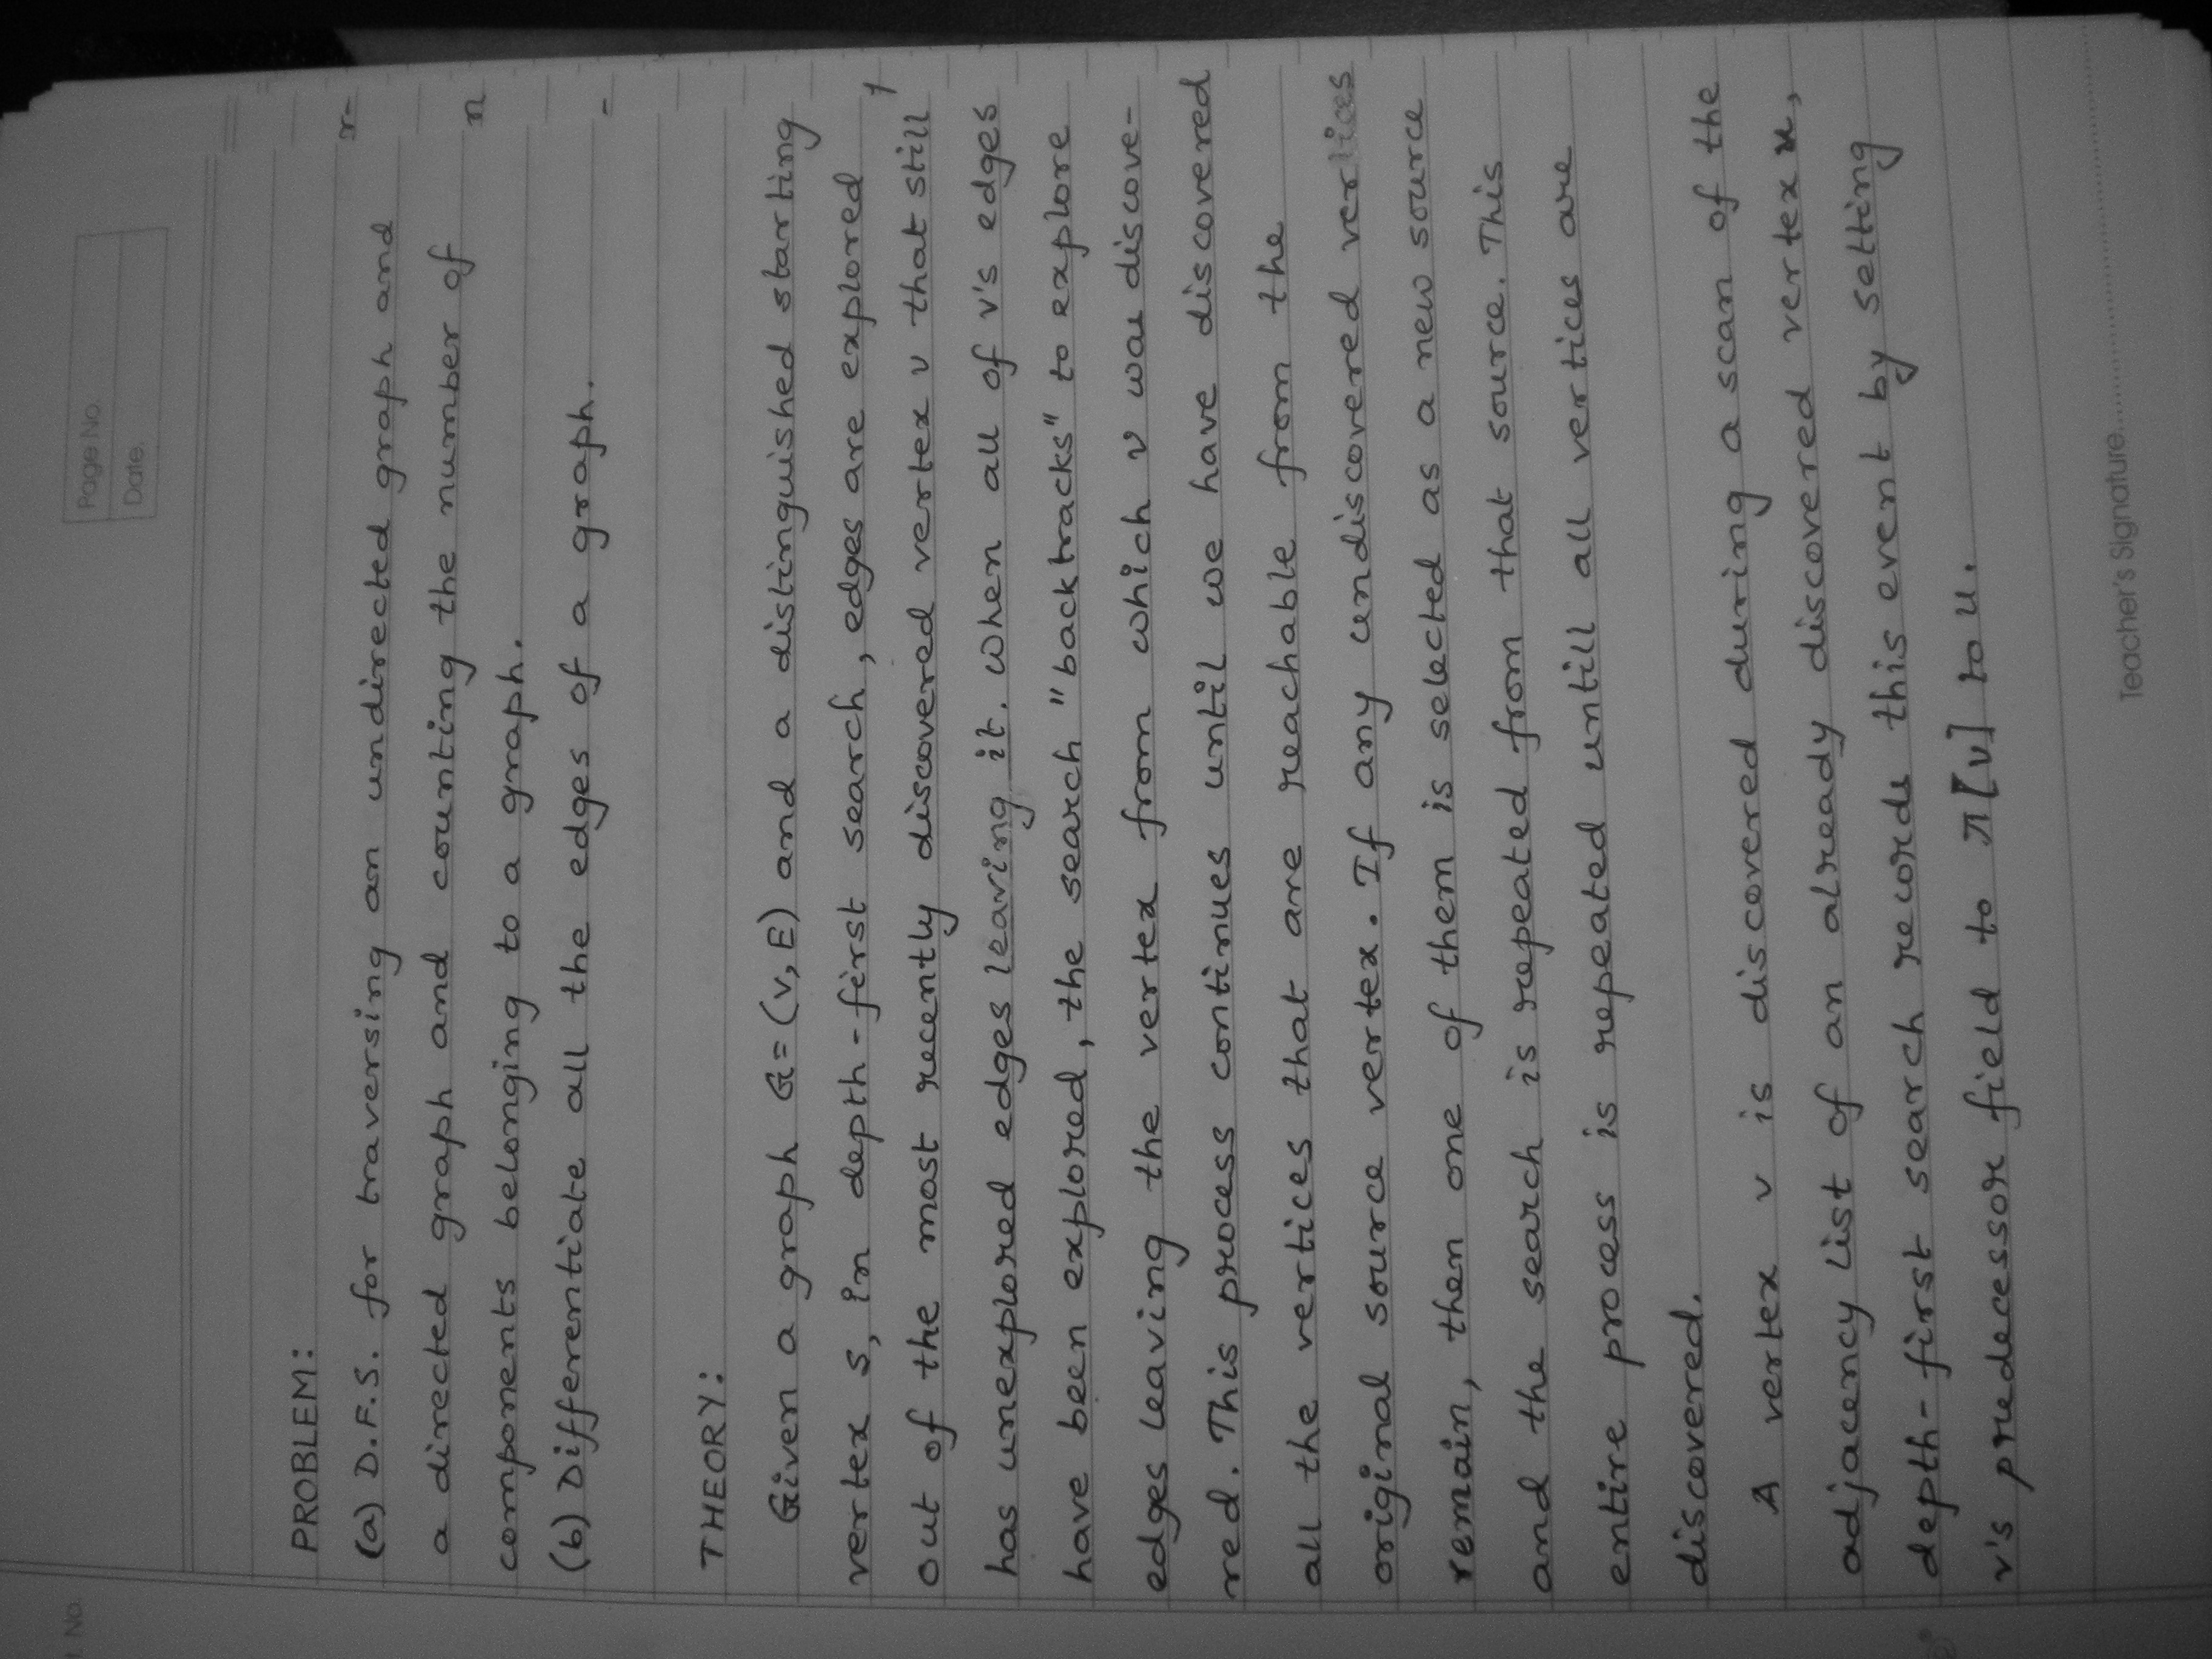 Page No.
Date.
No.
PROBLEM:
(a) D.F.S. for traversing an undirected graph and
a directed graph and counting the number of
components belonging to a graph.
(b) Differentiate all the edges of a graph.
THEORY:
Given a graph G=(V,E) and a distinguished starting
vertex s, in depth-first search, edges are explored
out of the most recently discovered vertex v that still
has unexplored edges leaving it. when all of v's edges
have been explored, the search "backtracks" to explore
edges leaving the vertex from which v was discove-
red. This process continues until we have discovered
all the vertices that are reachable from the
original source vertex. If any undiscovered vertices
remain, then one of them is selected as a new source
and the search is repeated from that source. This
entire process is repeated untill all vertices are
discovered.
A vertex v is discovered during a scan of the
adjacency list of an already discovered vertex u,
depth-first search records this event by setting
v's predecessor field to π[v] to u.
Teacher's Signature